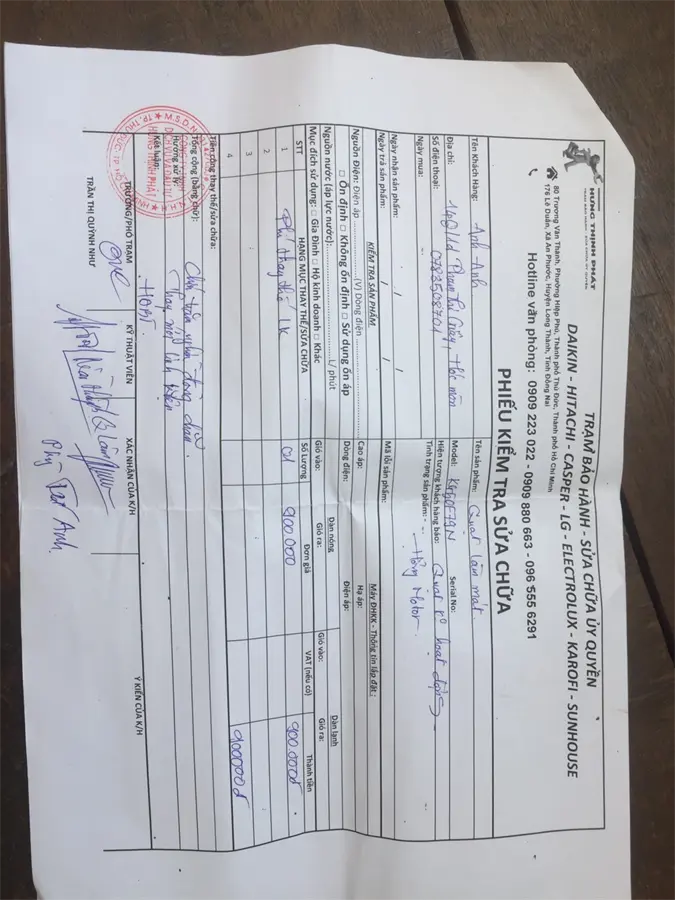 HƯNG THỊNH PHÁT
TRẠM BẢO HÀNH - SỬA CHỮA ỦY QUYỀN
DAIKIN - HITACHI - CASPER - LG - ELECTROLUX - KAROFI - SUNHOUSE
80 Trương Văn Thành, Phường Hiệp Phú, Thành phố Thủ Đức, Thành phố Hồ Chí Minh
176 Lê Duẩn, Xã An Phước, Huyện Long Thành, Tỉnh Đồng Nai
Hotline văn phòng: 0909 223 022 - 0909 880 663 - 096 555 6291
PHIẾU KIỂM TRA SỬA CHỮA
Tên Khách Hàng: Anh - Anh
Tên sản phẩm: Quạt làm mát
Địa chỉ: Hóc môn
Model: Serial No:
Số điện thoại: 0783508701
Hiện tượng khách hàng báo: Quạt k hoạt động
Ngày mua:
Tình trạng sản phẩm: - Hỏng Motor
Ngày nhận sản phẩm: / /
Ngày trả sản phẩm: / /
Mã lỗi sản phẩm:
KIỂM TRA SẢN PHẨM
Máy ĐHKK - Thông tin lắp đặt :
Nguồn Điện: Điện áp (V) Dòng điện
Cao áp: Hạ áp:
□ Ổn định □ Không ổn định □ Sử dụng ổn áp
Dòng điện: Điện áp:
Nguồn nước (áp lực nước): L/ phút
Dàn nóng Dàn lạnh
Mục đích sử dụng: □ Gia Đình □ Hộ kinh doanh □ Khác
Gió vào: Gió ra: Gió vào: Gió ra:
STT HẠNG MỤC THAY THẾ/SỬA CHỮA Số Lượng Đơn giá VAT (nếu có) Thành tiền
1 Phí thay thế LK 01 900.000 900.000đ
2
3
4 900000đ
Tiền công thay thế/sửa chữa:
Tổng cộng (bằng chữ): Chín trăm nghìn đồng chẵn.
Hướng xử lý: Thay mới linh kiện
Kết luận: HĐBT.
TRƯỞNG/PHÓ TRẠM KỸ THUẬT VIÊN XÁC NHẬN CỦA K/H Ý KIẾN CỦA K/H
TRẦN THỊ QUỲNH NHƯ